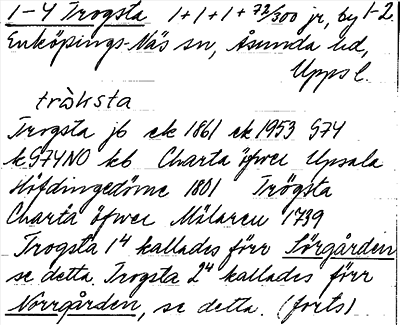 1-4 Trogsta 1+1+1+72/300 jr, by 1-2.
Enköpings-Näs sn, Åsunda hd,
Upps l.
tråksta
Trogsta jb ek 1861 ek 1953 G74
k G74NO kb Charta öfwer Upsala
Höfdingedöme 1801 Trögsta
Charta öfwer Mälaren 1739
Trogsta 1⁴ kallades förr Sörgården
se detta. Trogsta 2⁴ kallades förr
Norrgården, se detta. (forts)